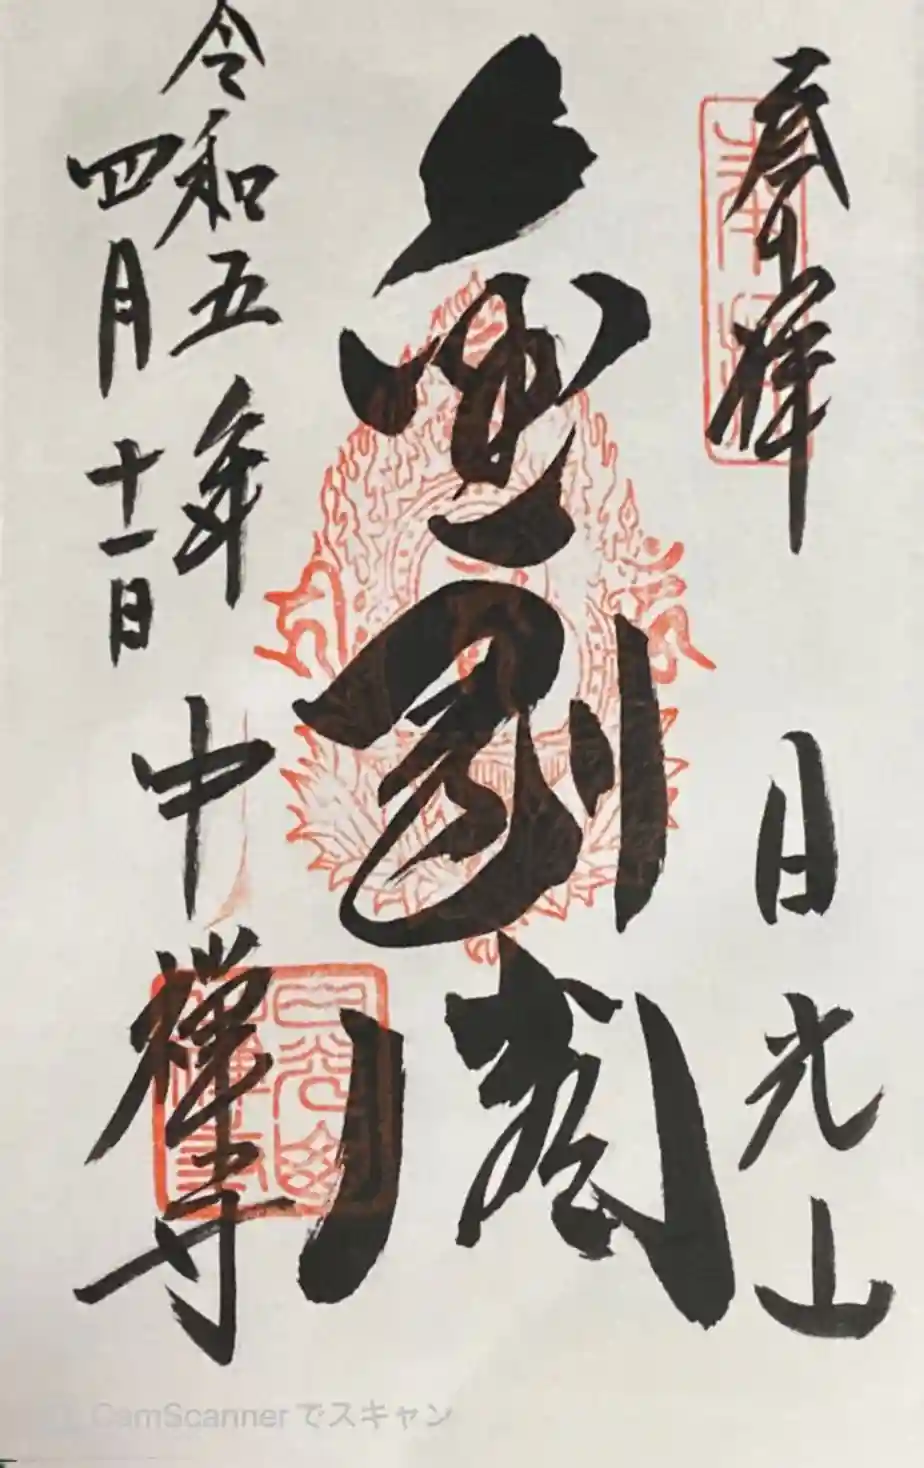 奉拝
日光山
金剛閣
令和五年
四月十一日
中禅寺
CamScanner でスキャン